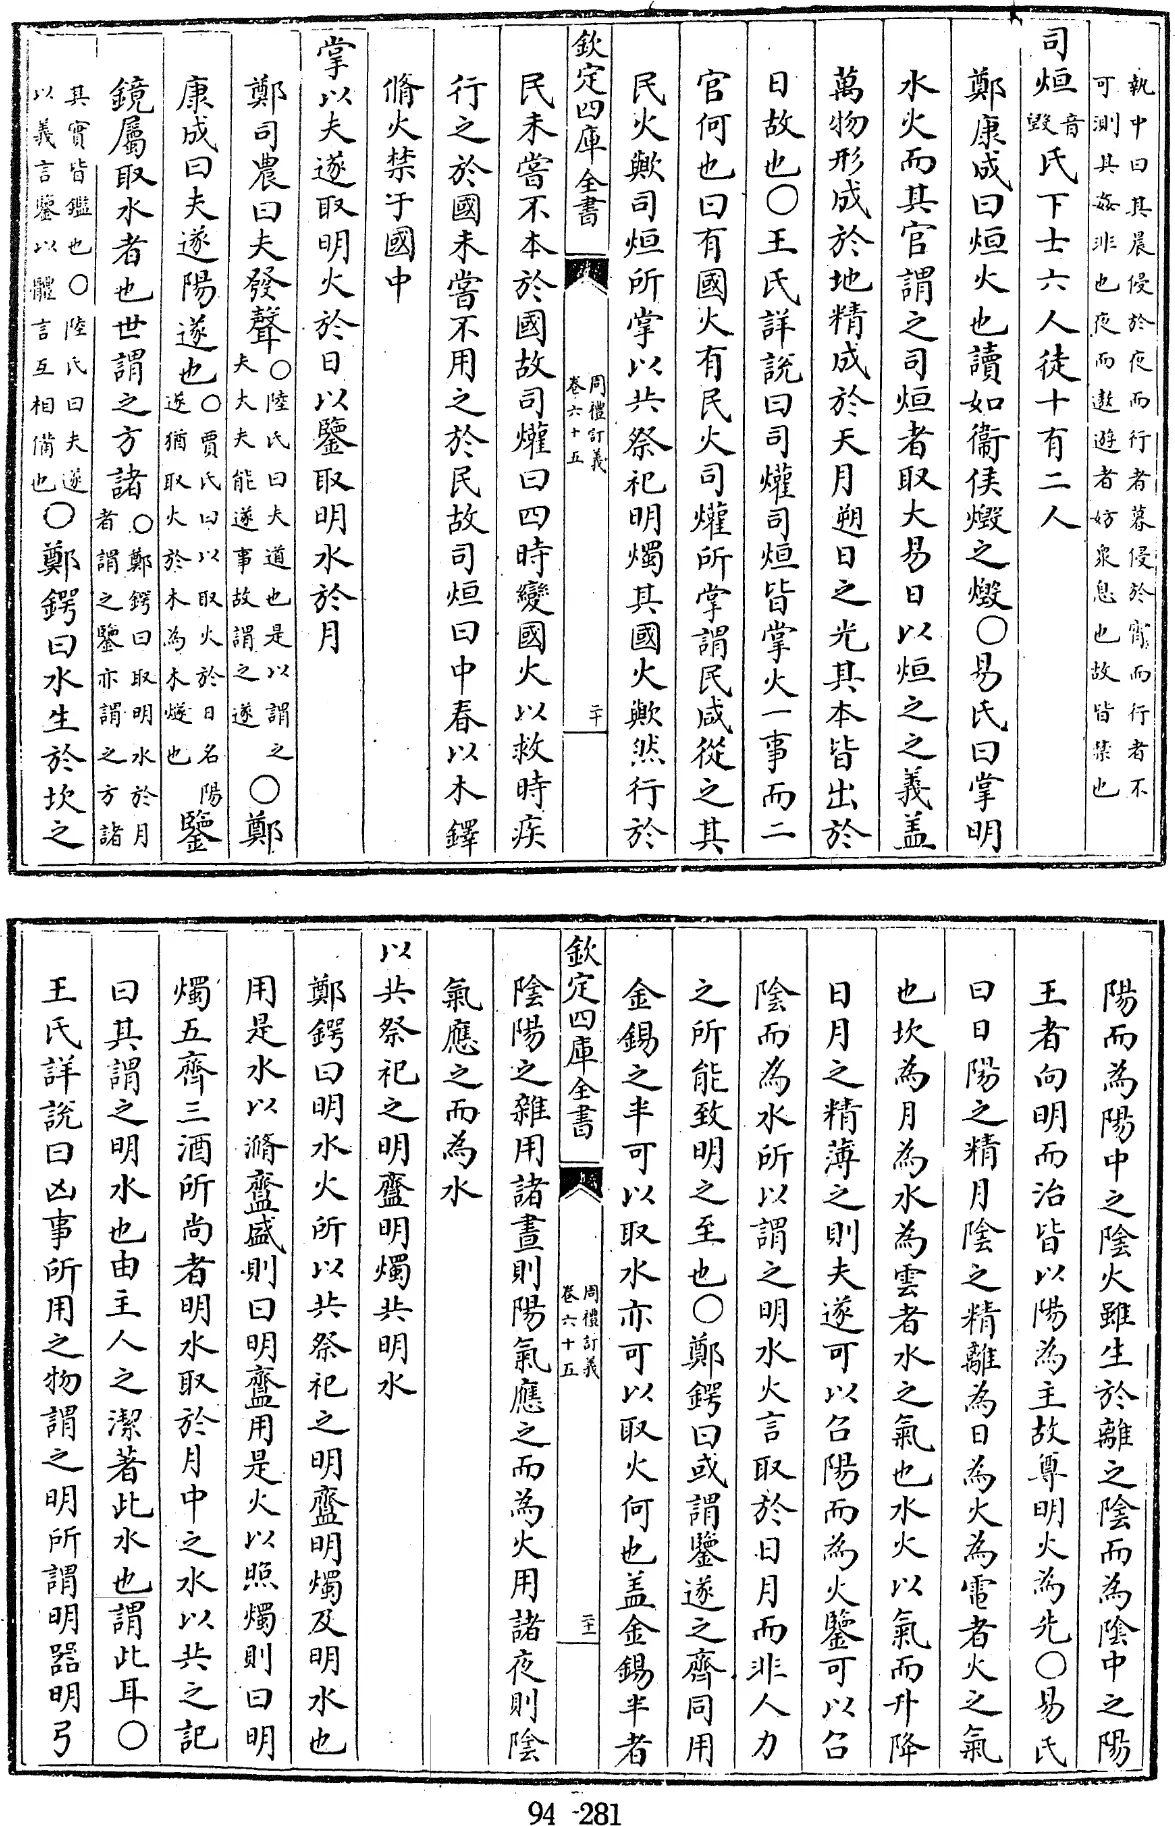 執中曰其晨侵於夜而行者暮侵於宵而行者不
可測其姦非也夜而遨遊者妨衆息也故皆禁也
司烜音毀氏下士六人徒十有二人
鄭康成曰烜火也讀如衞侯燬之燬○易氏曰掌明
水火而其官謂之司烜者取大易日以烜之之義盖
萬物形成於地精成於天月朔日之光其本皆出於
日故也○王氏詳說曰司爟司烜皆掌火一事而二
官何也曰有國火有民火司爟所掌謂民咸從之其
民火歟司烜所掌以共祭祀明燭其國火歟然行於
欽定四庫全書
周禮訂義
卷六十五
二十
民未嘗不本於國故司爟曰四時變國火以救時疾
行之於國未嘗不用之於民故司烜曰中春以木鐸
脩火禁于國中
掌以夫遂取明火於日以鑒取明水於月
鄭司農曰夫發聲○陸氏曰夫道也是以謂之夫大夫能遂事故謂之遂○鄭
康成曰夫遂陽遂也○賈氏曰以取火於日名陽遂猶取火於木為木燧也鑒
鏡屬取水者也世謂之方諸○鄭鍔曰取明水於月者謂之鑒亦謂之方諸
其實皆鑑也○陸氏曰夫遂以義言鑒以體言互相備也○鄭鍔曰水生於坎之
陽而為陽中之陰火雖生於離之陰而為陰中之陽
王者向明而治皆以陽為主故尊明火為先○易氏
曰日陽之精月陰之精離為日為火為電者火之氣
也坎為月為水為雲者水之氣也水火以氣而升降
日月之精薄之則夫遂可以召陽而為火鑒可以召
陰而為水所以謂之明水火言取於日月而非人力
之所能致明之至也○鄭鍔曰或謂鑒遂之齊同用
金錫之半可以取水亦可以取火何也盖金錫半者
欽定四庫全書
周禮訂義
卷六十五
二十一
陰陽之雜用諸晝則陽氣應之而為火用諸夜則陰
氣應之而為水
以共祭祀之明齍明燭共明水
鄭鍔曰明水火所以共祭祀之明齍明燭及明水也
用是水以滫齍盛則曰明齍用是火以照燭則曰明
燭五齊三酒所尚者明水取於月中之水以共之記
曰其謂之明水也由主人之潔著此水也謂此耳○
王氏詳說曰凶事所用之物謂之明所謂明器明弓
94-281